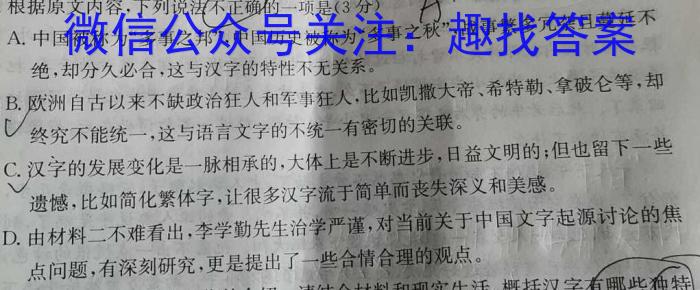 根据原文内容,下列说法不正确的一项是(3分)
微信公众号关注:趣找答案
A. 中国 不
绝,却分久必合,这与汉字的特性不无关系。
B. 欧洲自古以来不缺政治狂人和军事狂人,比如凯撒大帝、希特勒、拿破仑等,却
终究不能统一,这与语言文字的不统一有密切的关联。
C. 汉字的发展变化是一脉相承的,大体上是不断进步,日益文明的;但也留下一些
遗憾,比如简化繁体字,让很多汉字流于简单而丧失深义和美感。
D. 由材料二不难看出,李学勤先生治学严谨,对当前关于中国文字起源讨论的焦
点问题,有深刻研究,更是提出了一些合情合理的观点。
请结合材料和现实生活,概括汉字有哪些独特